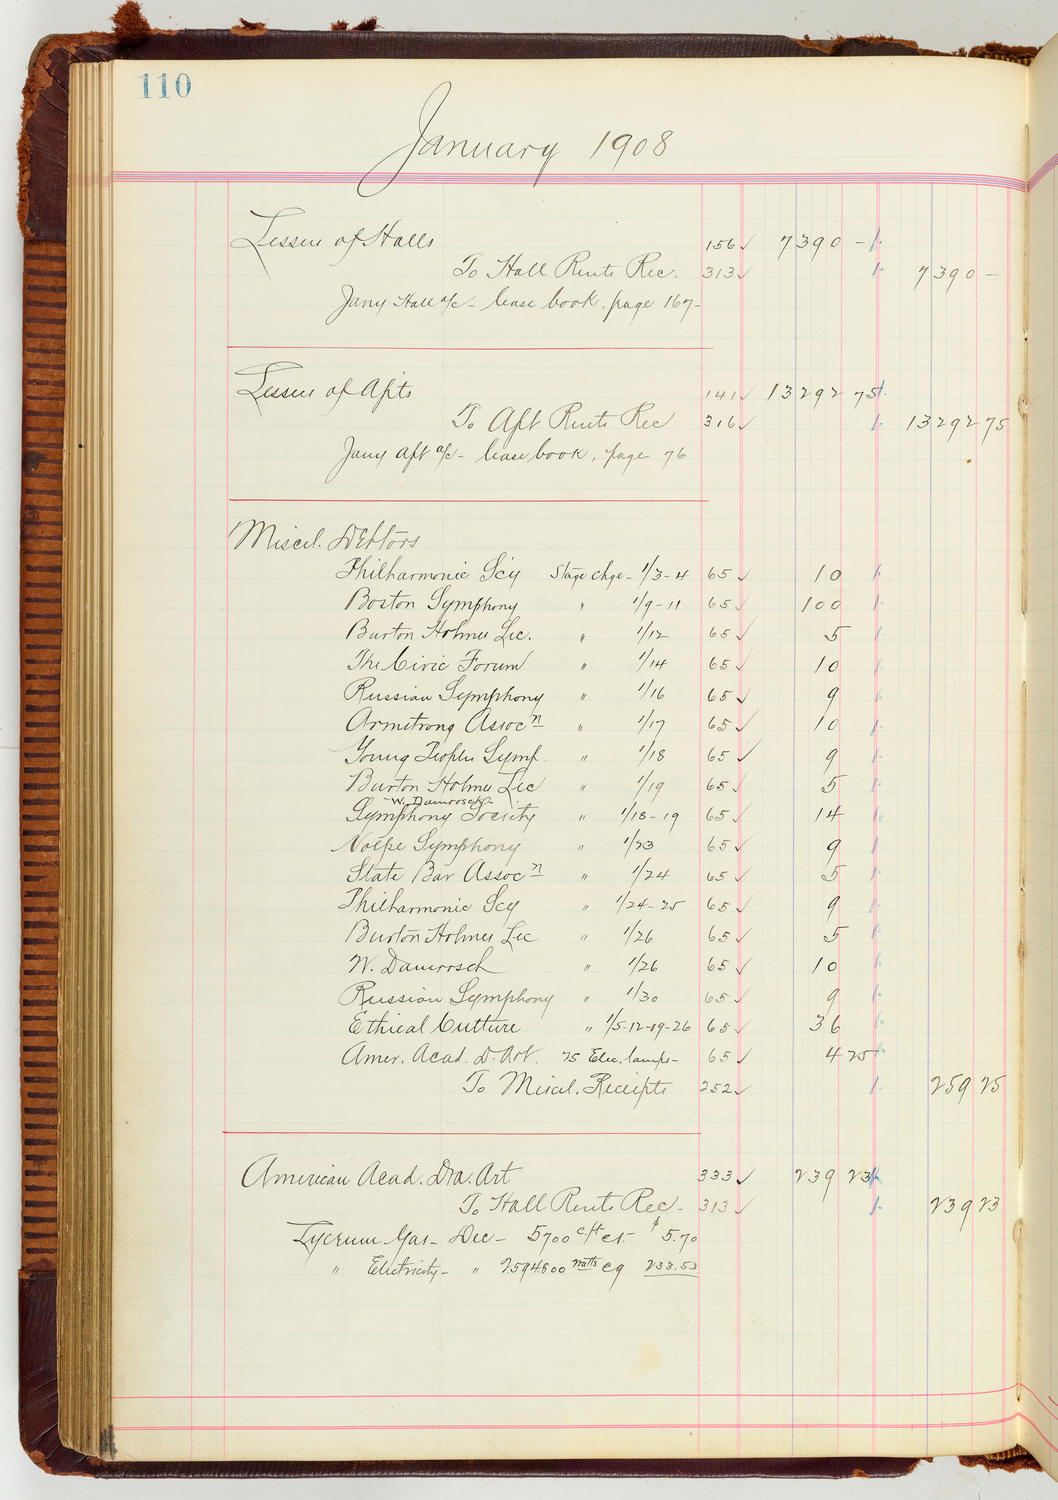 110
January 1908
Lessees of Halls 156 ✓ 7390 -
To Hall Rents Rec. 313 ✓ 7390 -
Jany Hall a/c - lease book, page 167 -
Lessees of Apts 141 ✓ 13292 75
To Apt Rents Rec 316 ✓ 13292 75
Jany Apt a/c - lease book, page 76
Miscel. Debtors
Philharmonic Scy Stage chge - 1/3-4 65 ✓ 10
Boston Symphony " 1/9-11 65 ✓ 100
Burton Holmes Lec. " 1/12 65 ✓ 5
The Civic Forum " 1/14 65 ✓ 10
Russian Symphony " 1/16 65 ✓ 9
Armstrong Assocn " 1/17 65 ✓ 10
Young Peoples Symp. " 1/18 65 ✓ 9
Burton Holmes Lec " 1/19 65 ✓ 5
- W. Damrosch -
Symphony Society " 1/18-19 65 ✓ 14
Volpe Symphony " 1/23 65 ✓ 9
State Bar Assocn " 1/24 65 ✓ 5
Philharmonic Scy " 1/24-25 65 ✓ 9
Burton Holmes Lec " 1/26 65 ✓ 5
W. Damrosch " 1/26 65 ✓ 10
Russian Symphony " 1/30 65 ✓ 9
Ethical Culture " 1/5-12-19-26 65 ✓ 36
Amer. Acad. D. Art. 25 Elec. lamps - 65 ✓ 4 25
To Miscel. Receipts 252 ✓ 259 25
American Acad. Dra. Art 333 ✓ 239 23
To Hall Rents Rec - 313 ✓ 239 23
Lyceum Gas - Dec - 5700 c/ft @ - $ 5.70
" Electricity - " 2594800 watts @ 9 233.53